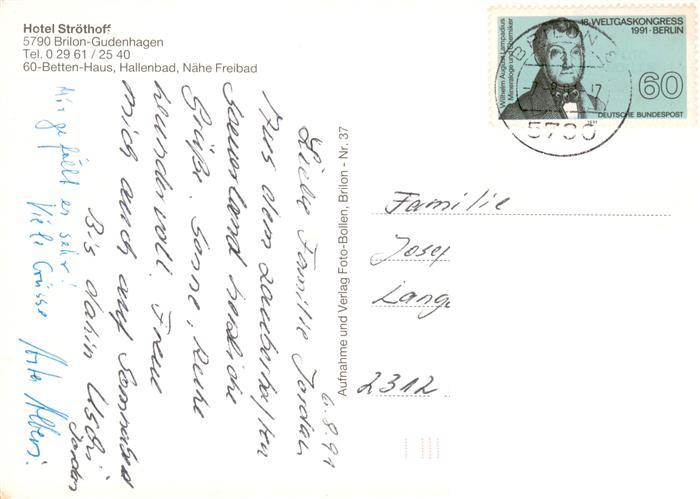 Hotel Ströthoff
5790 Brilon-Gudenhagen
Tel. 0 29 61 / 25 40
60-Betten-Haus, Hallenbad, Nähe Freibad
6.8.91
Liebe Familie Jordan
Aus dem zauberhaften
Sauerland herzliche
Grüße. Sonne, Ruhe
wundervoll. Freue
mich auch auf Samstag
Bis dahin Uschi
Jordan
Mir gefällt es sehr!
Viele Grüsse
Aufnahme und Verlag Foto-Bollen, Brilon - Nr. 37
18. WELTGASKONGRESS
1991 · BERLIN
Wilhelm August Lampadius
Mineraloge und Chemiker
60
DEUTSCHE BUNDESPOST
1991
BRILON
17
5790
Familie
Josef
Lange
2312